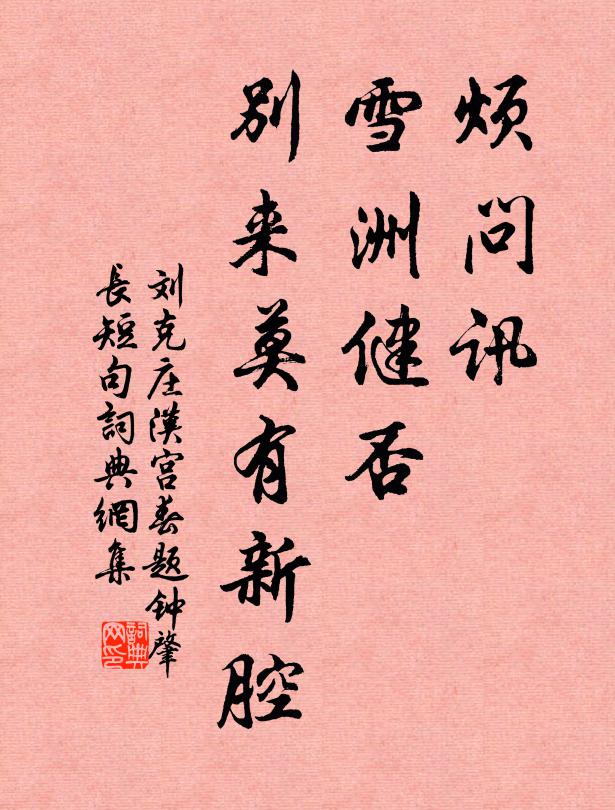 烦问讯
雪洲健否
别来莫有新腔
刘克庄漢宫春题钟肇
長短句詞典網集
詞典
网印